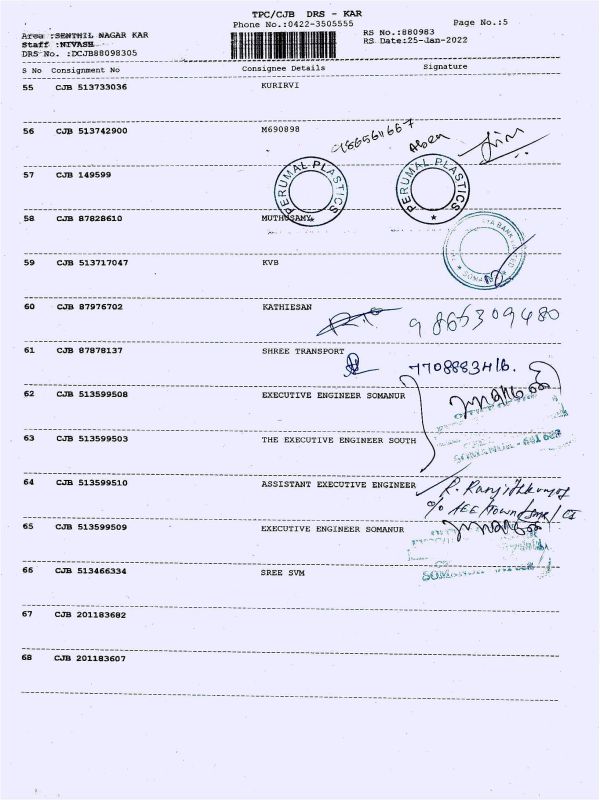 TPC/CJB DRS - KAR
Phone No.:0422-3505555 Page No.:5
Area :SENTHIL NAGAR KAR RS No.:880983
Staff :NIVASH RS Date:25-Jan-2022
DRS No. :DCJB88098305
S No Consignment No Consignee Details Signature
55 CJB 513733036 KURIRVI
56 CJB 513742900 M690898
57 CJB 149599
PERUMAL PLASTICS PERUMAL PLASTICS
58 CJB 87828610 MUTHUSAMY
59 CJB 513717047 KVB
60 CJB 87976702 KATHIESAN
9865309480
61 CJB 87878137 SHREE TRANSPORT
7708883416.
62 CJB 513599508 EXECUTIVE ENGINEER SOMANUR
63 CJB 513599503 THE EXECUTIVE ENGINEER SOUTH
64 CJB 513599510 ASSISTANT EXECUTIVE ENGINEER
65 CJB 513599509 EXECUTIVE ENGINEER SOMANUR
66 CJB 513466334 SREE SVM
67 CJB 201183682
68 CJB 201183607